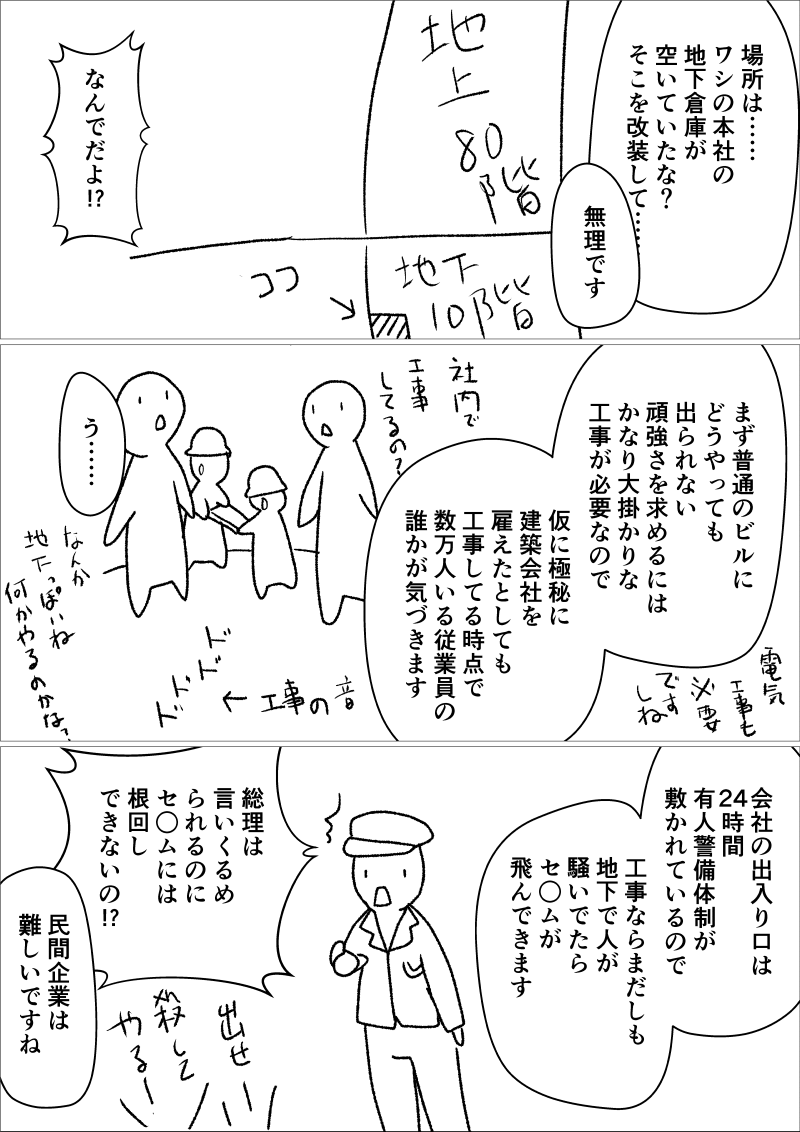 場所は……
ワシの本社の
地下倉庫が
空いていたな?
そこを改装して……
無理です
地上
80
階
地下
10階
ココ
なんでだよ!?
まず普通のビルに
どうやっても
出られない
頑強さを求めるには
かなり大掛かりな
工事が必要なので
電気
工事も
必要
です
しね
仮に極秘に
建築会社を
雇えたとしても
工事してる時点で
数万人いる従業員の
誰かが気づきます
社内で
工事
してるの?
う……
ドドドド
←工事の音
なんか
地下っぽいね
何かやるのかな?
会社の出入り口は
24時間
有人警備体制が
敷かれているので
工事ならまだしも
地下で人が
騒いでたら
セ〇ムが
飛んできます
総理は
言いくるめ
られるのに
セ〇ムには
根回し
できないの!?
出せ
殺して
やるー
民間企業は
難しいですね